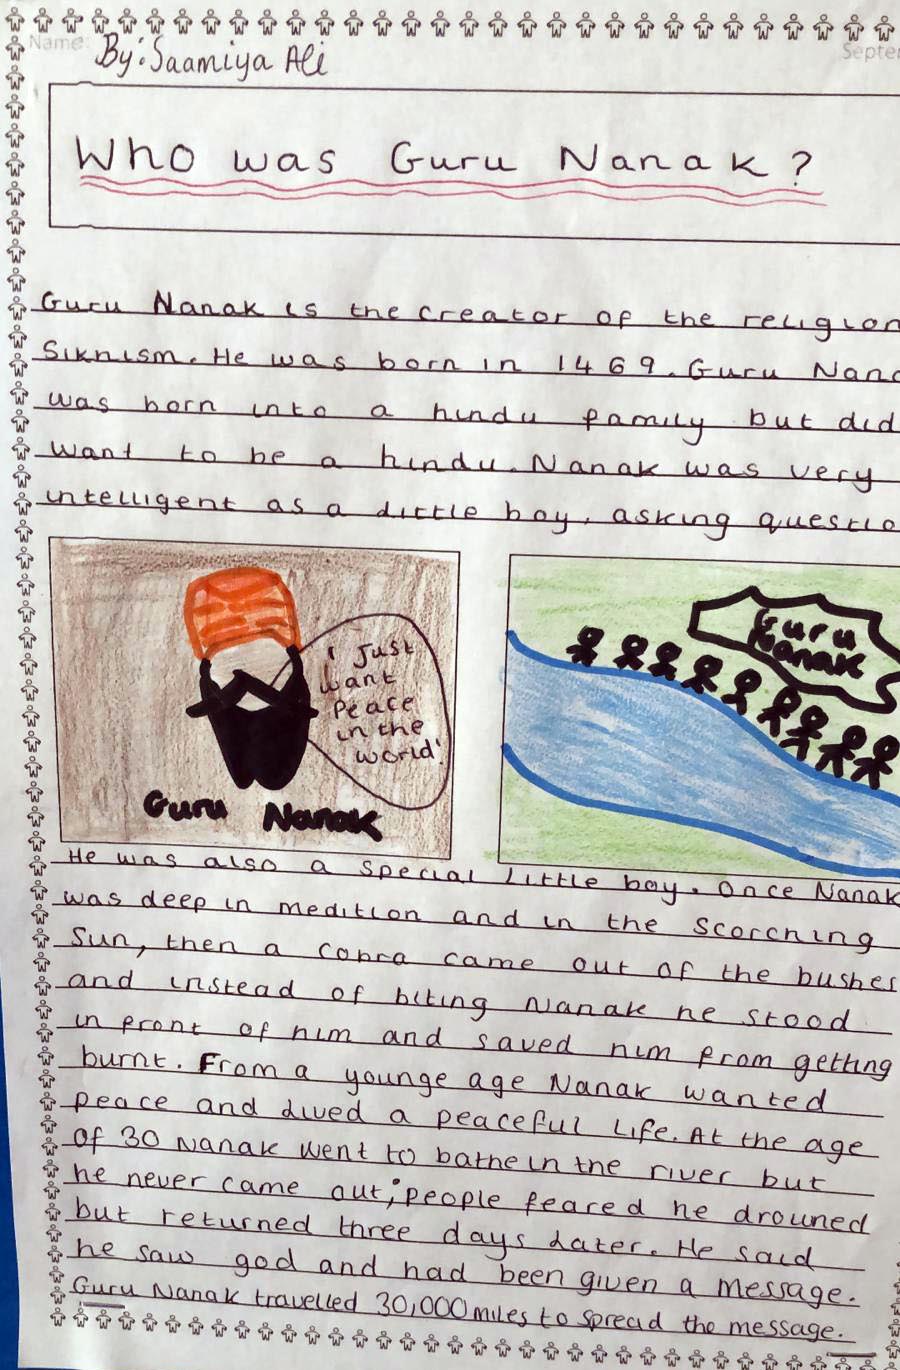 Name:
Septe
By: Saamiya Ali
Who was Guru Nanak?
Guru Nanak is the creator of the religion
Sikhism. He was born in 1469. Guru Nana
was born into a hindu family but did
want to be a hindu. Nanak was very
intelligent as a little boy, asking questio
I Just
want
Peace
in the
world!
Guru Nanak
Guru
Nanak
He was also a special little boy. Once Nanak
was deep in medition and in the scorching
sun, then a cobra came out of the bushes
and instead of biting Nanak he stood
in front of him and saved him from getting
burnt. From a younge age Nanak wanted
peace and lived a peaceful life. At the age
of 30 Nanak went to bathe in the river but
he never came out; people feared he drowned
but returned three days later. He said
he saw god and had been given a message.
Guru Nanak travelled 30,000 miles to spread the message.